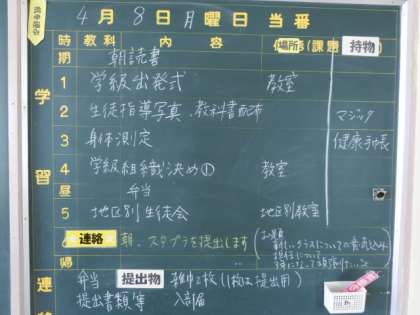 4月8日月曜日当番
時期 教科 内容 場所 (課康 持物
朝読書
1 学級出発式 教室
2 生徒指導写真、教科書配布 マジック
3 身体測定 健康手帳
4 学級組織決め① 教室
昼 弁当
5 地区別生徒会 地区別教室
学習
連絡 朝、スタプラを提出します
お題
新しいクラスについての意気込み
帰
弁当 提出物 雑巾2枚(1枚は提出用)
提出書類等 入部届
連